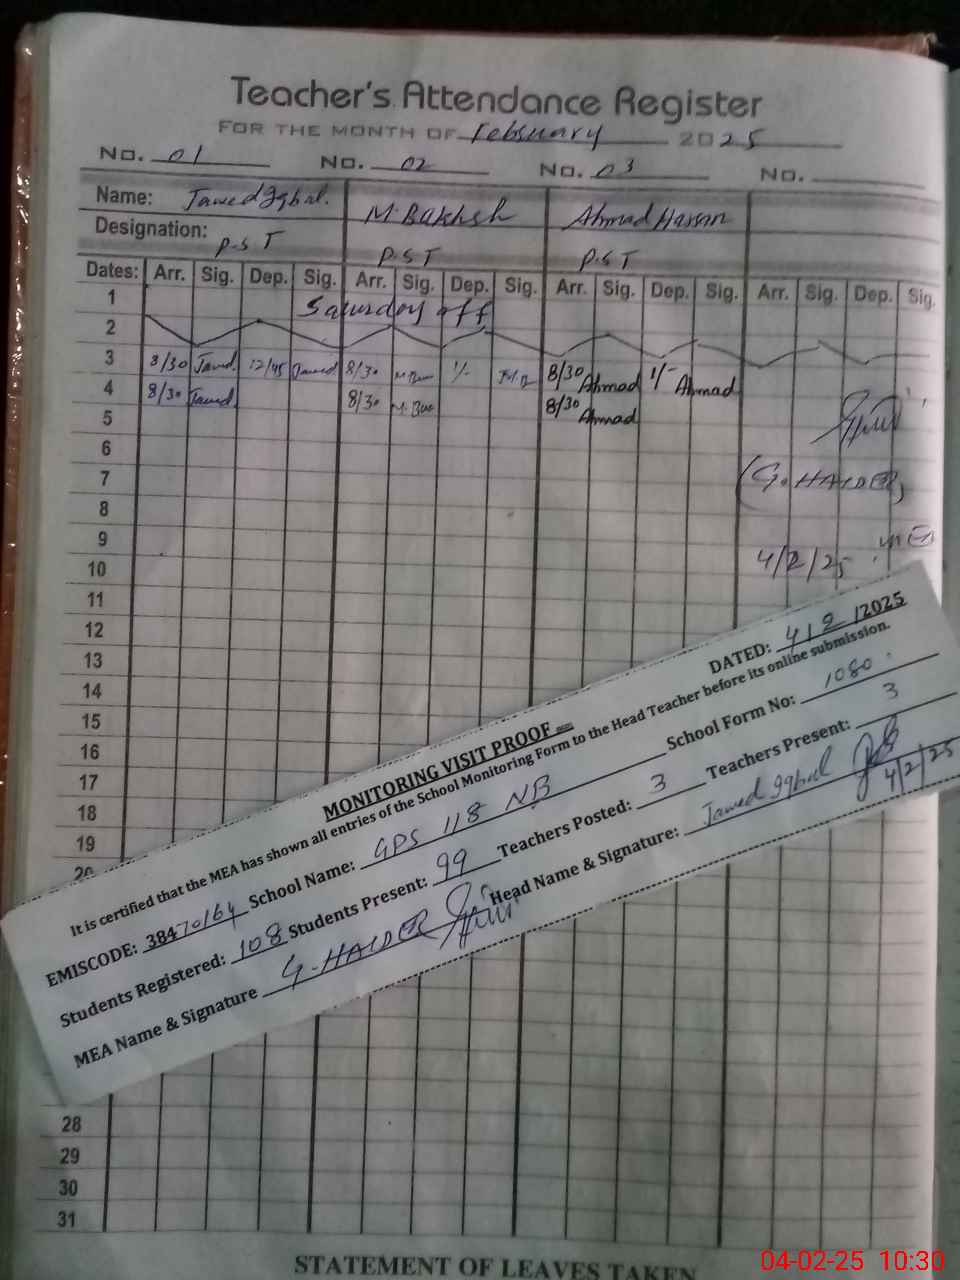 Teacher's Attendance Register
FOR THE MONTH OF February 2025
No. 01 No. 02 No. 03 No.
Name: Jawed Iqbal. M. Bakhsh Ahmad Hassan
Designation: P.S.T P.S.T P.S.T
Dates: Arr. Sig. Dep. Sig. Arr. Sig. Dep. Sig. Arr. Sig. Dep. Sig. Arr. Sig. Dep. Sig.
1 Saturday off
2
3 8/30 Jawed 12/45 Jawed 8/30 1/- 8/30 Ahmad 1/- Ahmad
4 8/30 Jawed 8/30 8/30 Ahmad
5
6
7 (G. HAIDER)
8
9
10 4/2/25
11
12
13
14
15
16
17
18
19
20
MONITORING VISIT PROOF
DATED: 4/2/2025
It is certified that the MEA has shown all entries of the School Monitoring Form to the Head Teacher before its online submission.
EMISCODE: 38470164 School Name: GPS 118 NB School Form No: 1080
Students Registered: 108 Students Present: 99 Teachers Posted: 3 Teachers Present: 3
MEA Name & Signature G. HAIDER Head Name & Signature: Jawed Iqbal 4/2/25
28
29
30
31
STATEMENT OF LEAVES TAKEN
04-02-25 10:30